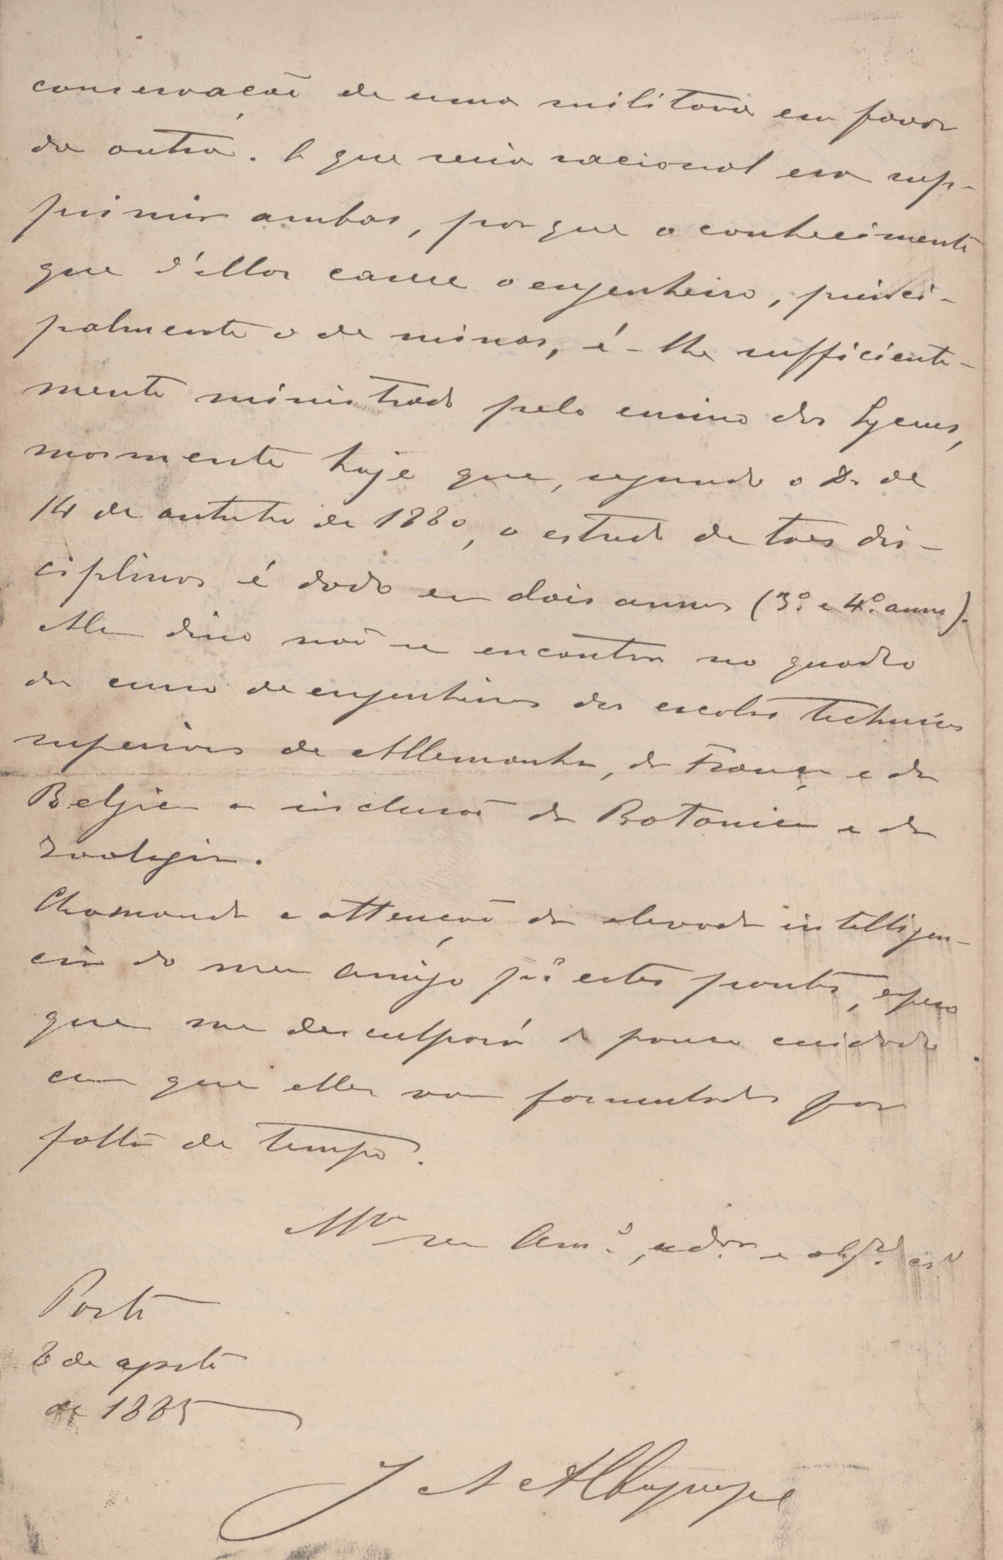 conservação de uma militaria em favor
da outra. O que seria racional era sup-
primir ambas, por que o conhecimento
que d'ellas carece o engenheiro, princi-
palmente o de minas, é-lhe sufficiente-
mente ministrado pelo ensino dos Lyceus,
mormente hoje que, segundo o D. de
14 de outubro de 1880, o estudo de taes dis-
ciplinas é dado em dois annos (3.º e 4.º annos).
Alem disso não se encontra no quadro
do curso de engenheiros das escolas technicas
superiores da Allemanha, da França e da
Belgica a inclusão da Botanica e da
Zoologia.
Chamando a attenção da elevada intelligen-
cia do meu amigo p.ª estes pontos, espero
que me desculpará o pouco cuidado
com que elles vão formulados por
falta de tempo.
seu Am.º, e
Porto
8 de agosto
de 1885
J A Albuquerque